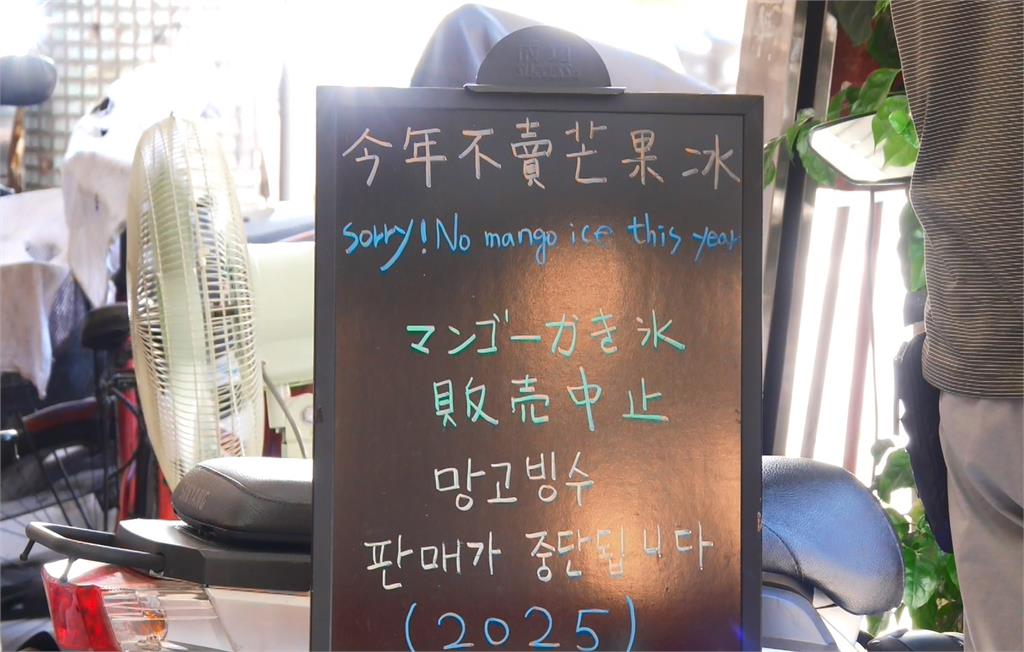 今年不賣芒果冰
sorry! No mango ice this year
マンゴーかき氷
販売中止
망고빙수
판매가 중단됩니다
(2025)